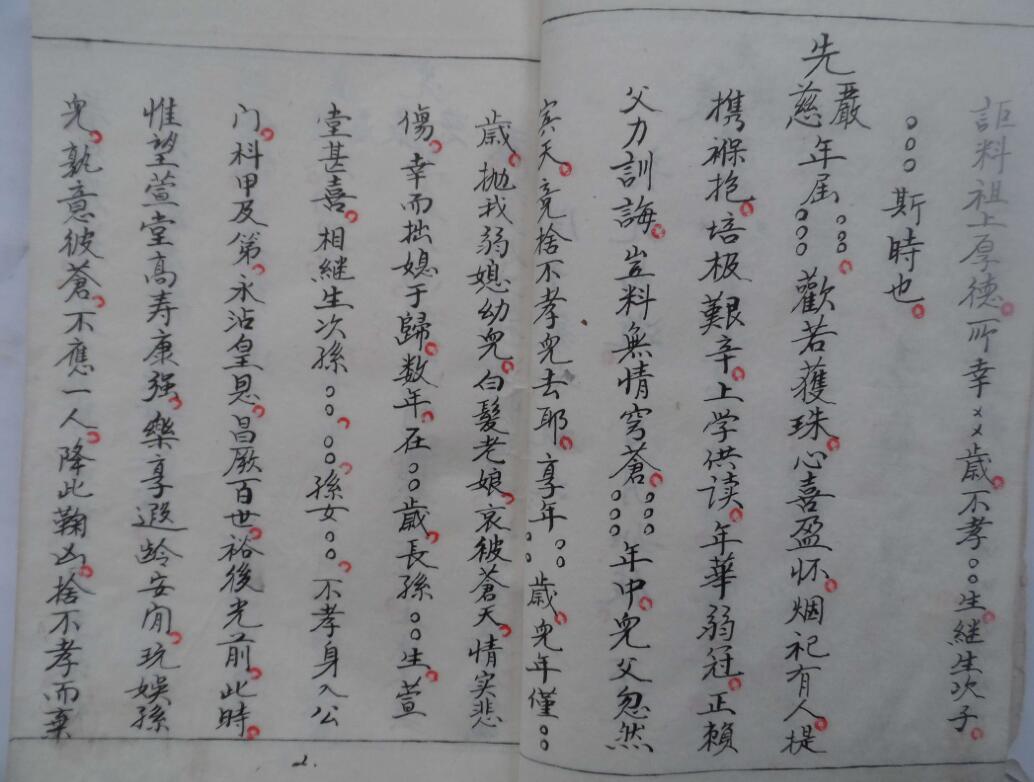 詎料祖上厚德。所幸××歲。不孝○○生。継生次子。
○○○斯時也。
先慈嚴年屆○○○○○○。歡若獲珠。心喜盈怀。烟祀有人。提
携褓抱。培极艱辛。上学供读。年華弱冠。正賴
父力訓誨。豈料無情穹蒼。○○○○○○年中。兒父忽然
賓天。竟捨不孝兒去耶。享年○○○○歲。兒年僅○○
歲。抛我弱媳幼兒。白髮老娘。哀彼蒼天。情实悲
傷。幸而拙媳于歸。数年。在○○歲。長孫○○生。萱
堂甚喜。相継生次孫○○。○○孫女○○。不孝身入公
门。科甲及第。永沾皇恩。昌厥百世。裕後光前。此時。
惟望萱堂高寿康强。樂享遐龄安閒。玩娱孫
兒。孰意彼蒼。不應一人。降此鞠凶。捨不孝而棄
2.